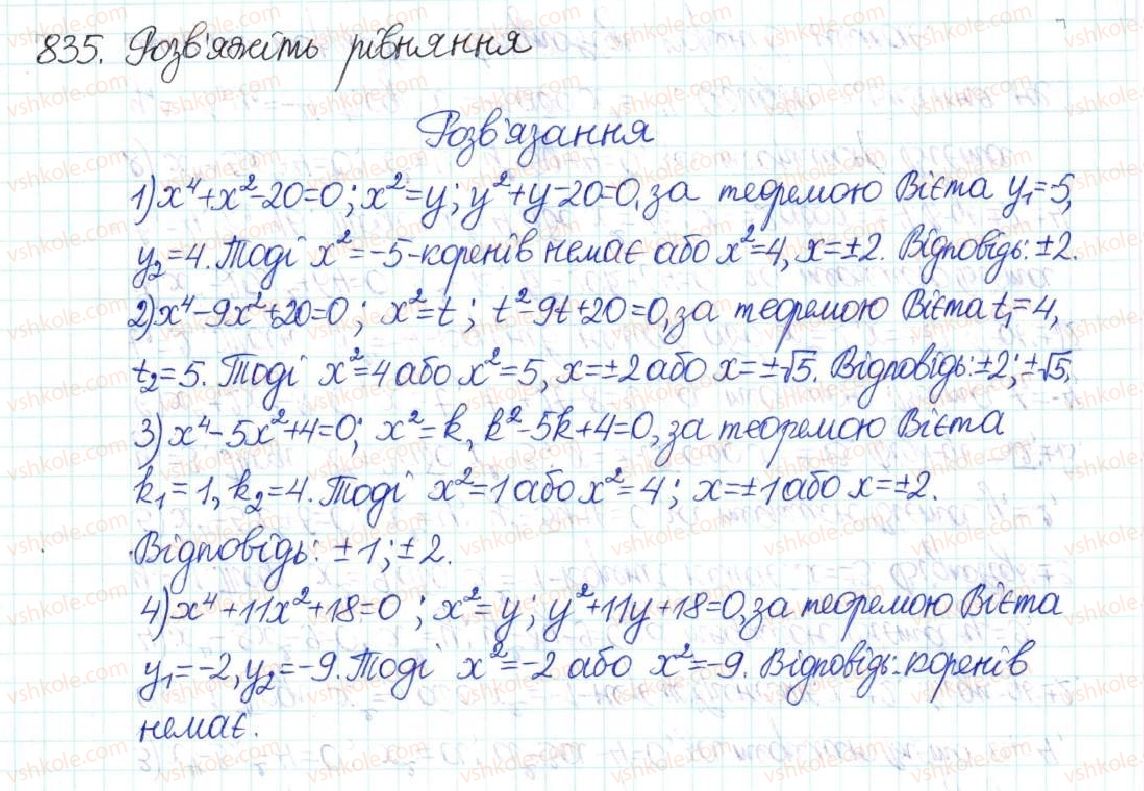 835. Розв'яжіть рівняння
Розв'язання
1) x⁴+x²-20=0; x²=y; y²+y-20=0, за теоремою Вієта y₁=5,
y₂=4. Тоді x²=-5-коренів немає або x²=4, x=±2. Відповідь: ±2.
2) x⁴-9x²+20=0; x²=t; t²-9t+20=0, за теоремою Вієта t₁=4,
t₂=5. Тоді x²=4 або x²=5, x=±2 або x=±√5. Відповідь: ±2; ±√5.
3) x⁴-5x²+4=0; x²=k, k²-5k+4=0, за теоремою Вієта
k₁=1, k₂=4. Тоді x²=1 або x²=4; x=±1 або x=±2.
Відповідь: ±1; ±2.
4) x⁴+11x²+18=0; x²=y; y²+11y+18=0, за теоремою Вієта
y₁=-2, y₂=-9. Тоді x²=-2 або x²=-9. Відповідь: коренів
немає.
vshkole.com